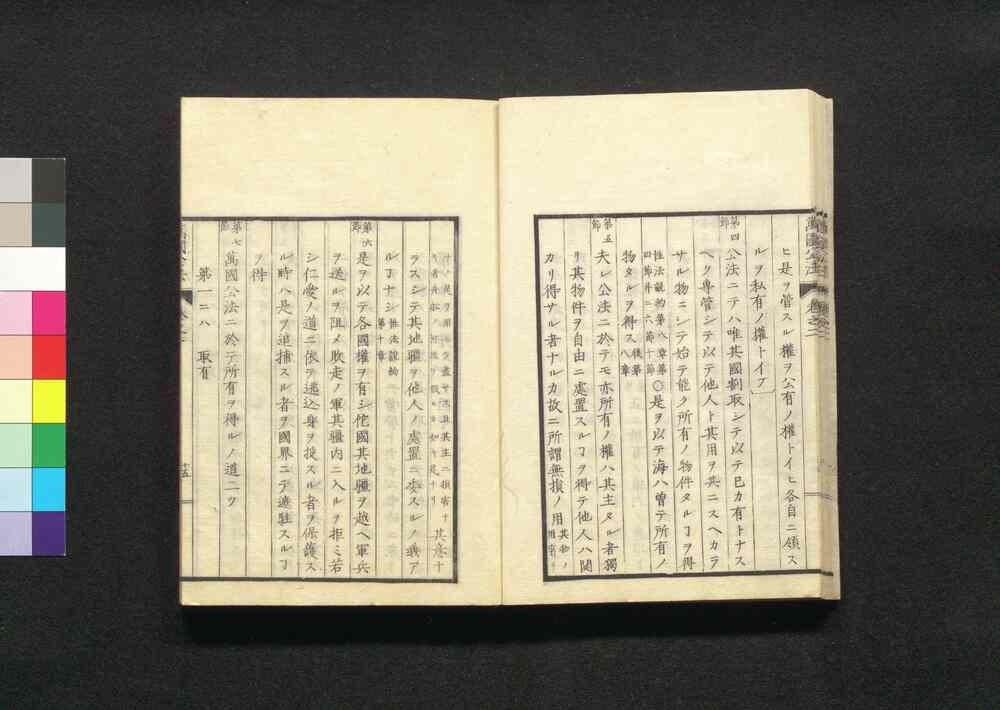 ヒ是ヲ管スル權ヲ公有ノ權トイヒ各自ニ領ス
ルヲ私有ノ權トイフ
第四節 公法ニテハ唯其國割取シテ以テ已カ有トナス
ヘク專管シテ以テ他人ト其用ヲ共ニスヘカラ
サル物ニシテ始テ能ク所有ノ物件タルヿヲ得
性法説約第八章第四節并ニ六節十節 〇是ヲ以テ海ハ曽テ所有ノ
物タルヲ得ス 後第八章
第五節 夫レ公法ニ於テモ亦所有ノ權ハ其主タル者獨
リ其物件ヲ自由ニ處置スルヿヲ得テ他人ハ関
カリ得サル者ナルカ故ニ所謂無損ノ用 其物ノ
其意ナ
ラスシテ其地疆ヲ他人ノ處置ニ委スルノ義ア
ルヿナシ 性法説約第十章
第六節 是ヲ以テ各國權ヲ有シ佗國其地疆ヲ越ヘ軍兵
ヲ送ルヲ阻メ敗走ノ軍其疆内ニ入ルヲ拒ミ若
シ仁愛ノ道ニ依テ逃込身ヲ投スル者ヲ保護ス
ル時ハ是ヲ追捕スル者ヲ國界ニテ遮駐スルヿ
ヲ得
第七節 萬國公法ニ於テ所有ヲ得ルノ道二ツ
第一ニハ 取有
十五